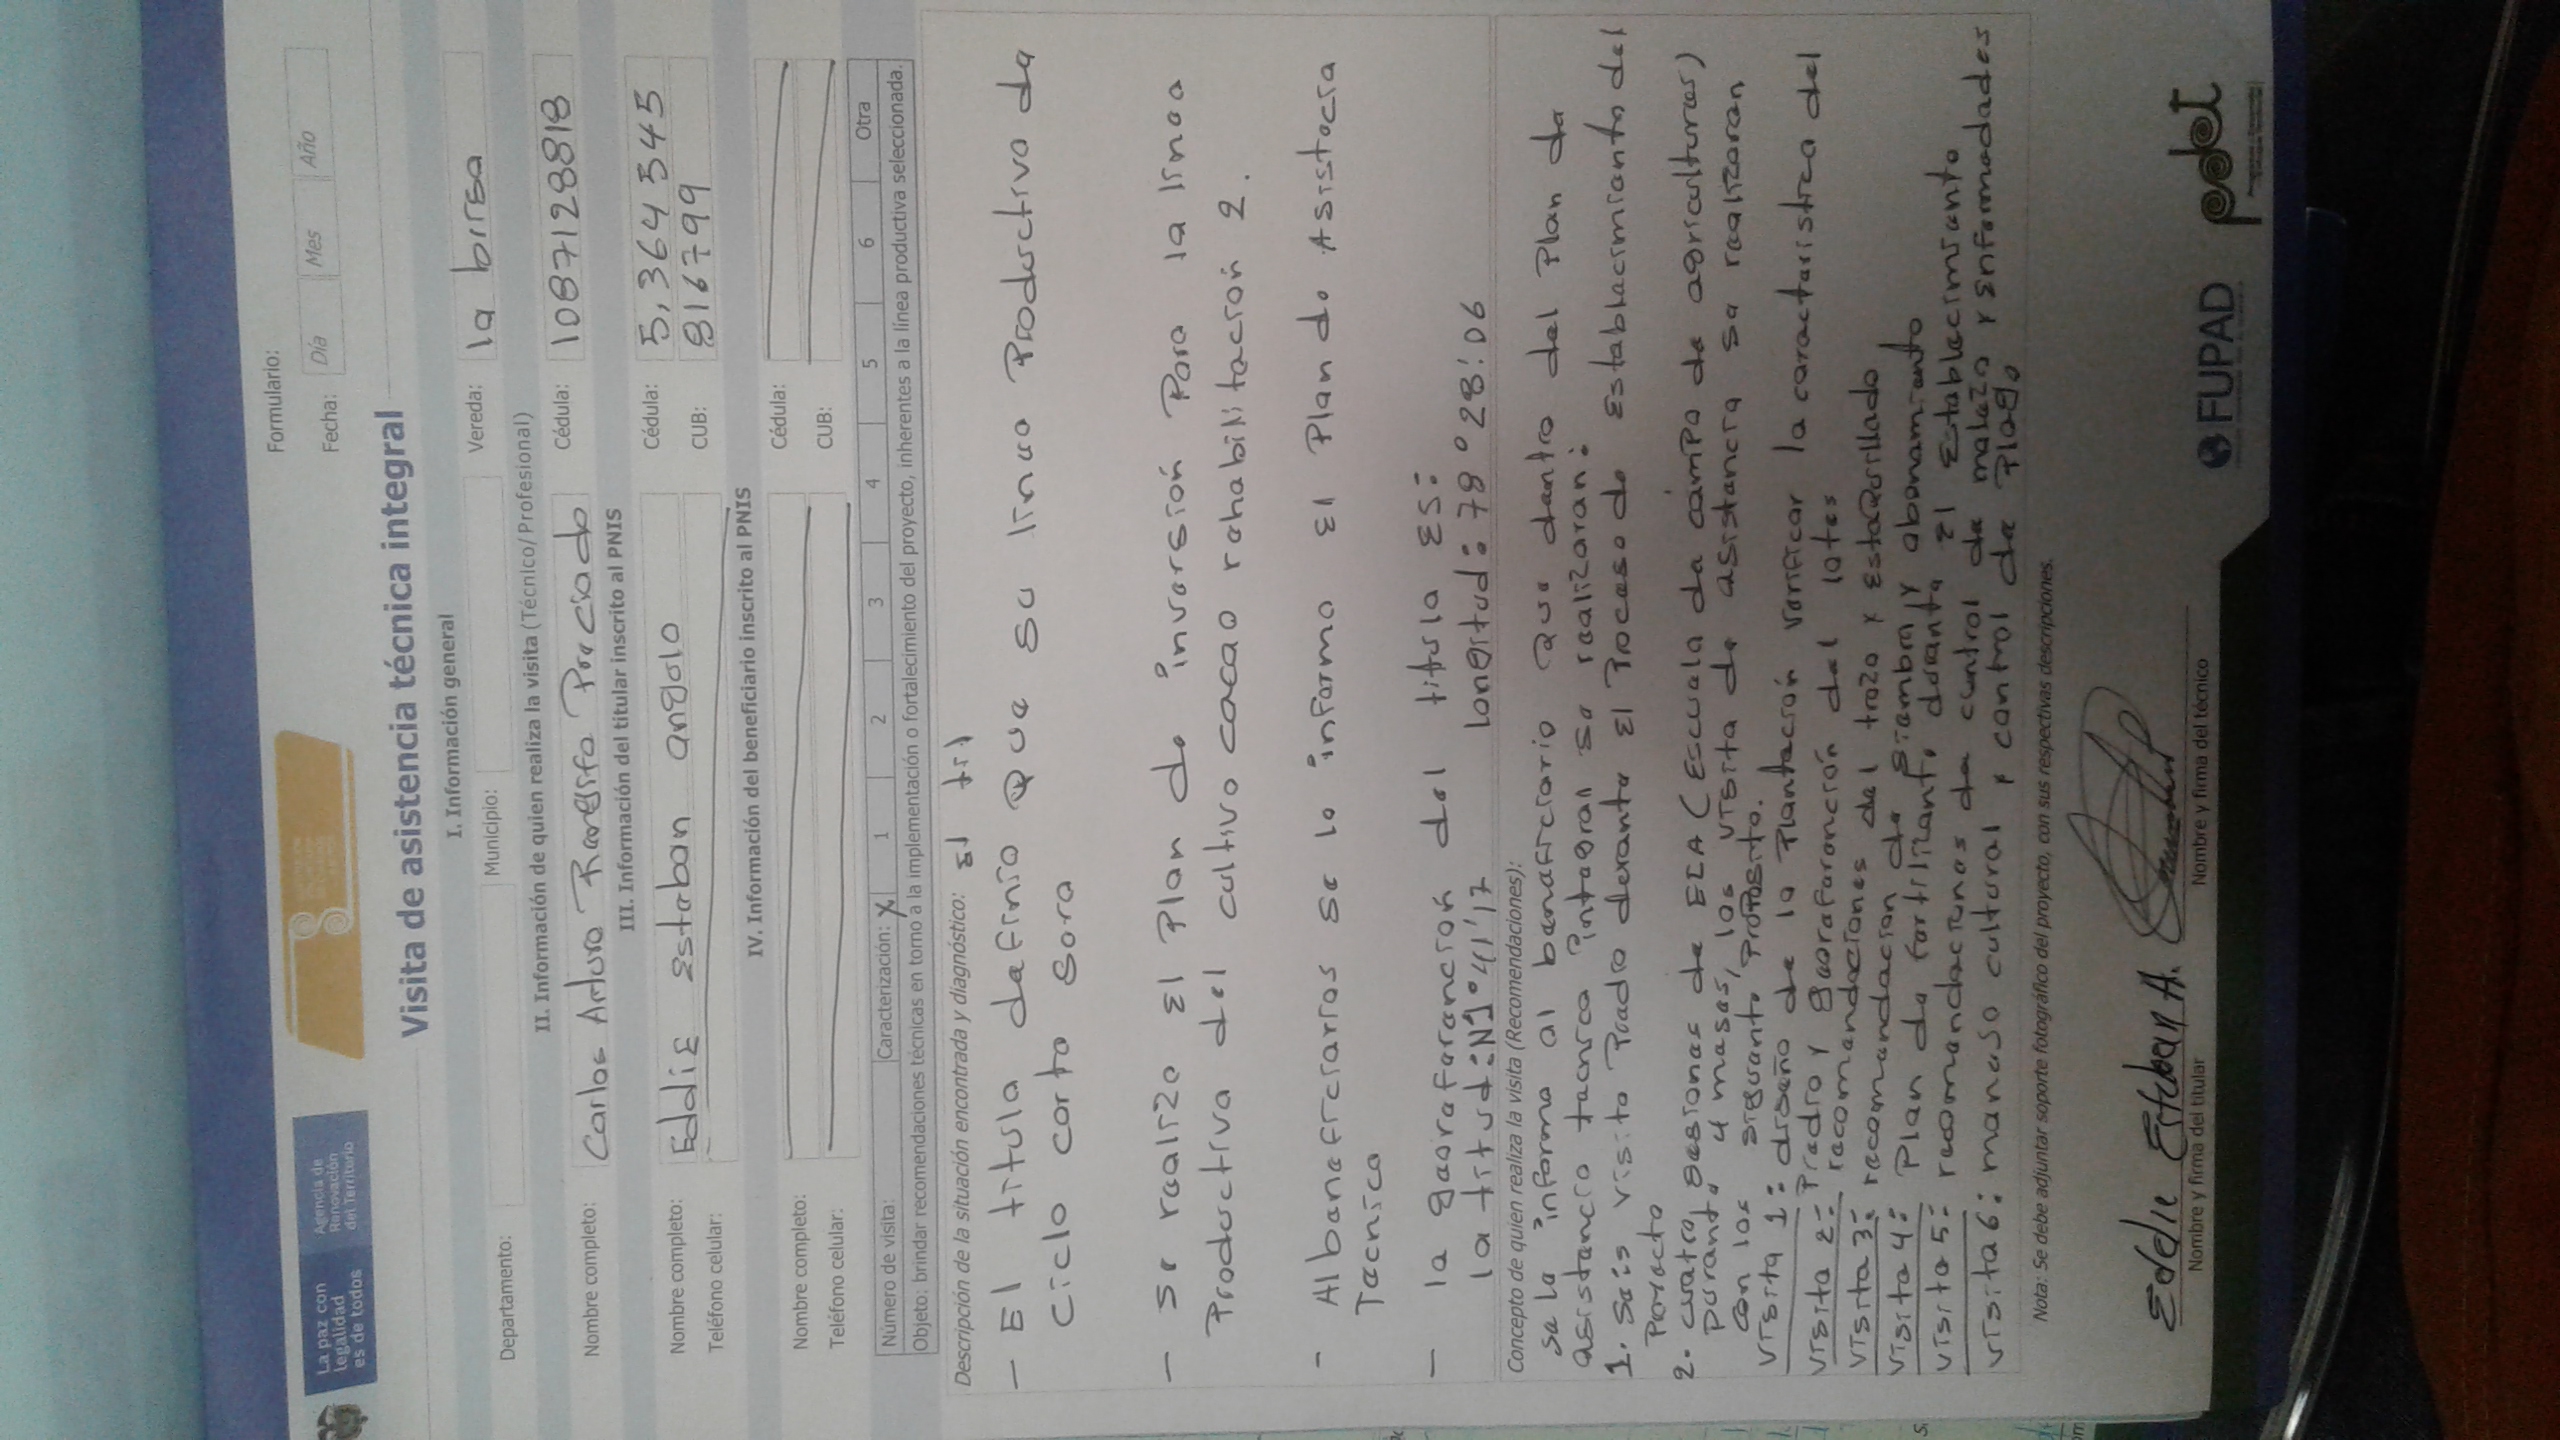 La paz con
legalidad
es de todos
Agencia de
Renovación
del Territorio
Formulario:
Fecha: Día Mes Año
Visita de asistencia técnica integral
I. Información general
Departamento: Municipio: Vereda: la birsa
II. Información de quien realiza la visita (Técnico/Profesional)
Nombre completo: Carlos Arturo Preciado Cédula: 1087128818
III. Información del titular inscrito al PNIS
Nombre completo: Eddie Esteban angulo Cédula: 5,364545
Teléfono celular: CUB: 816799
IV. Información del beneficiario inscrito al PNIS
Nombre completo: Cédula:
Teléfono celular: CUB:
Número de visita: Caracterización: X 1 2 3 4 5 6 Otra
Objeto: brindar recomendaciones técnicas en torno a la implementación o fortalecimiento del proyecto, inherentes a la línea productiva seleccionada.
Descripción de la situación encontrada y diagnóstico: El tit
- El titula definio Que su linea Productivo de
Ciclo corto Sera
- se realizo El Plan de inversión Para la linea
Productiva del cultivo cacao rehabilitación 2.
- Al beneficiarios se le informo El Plan de Asistecia
Tecnica
- la georeferencion del titula ES:
latitud: N1°41'17 longitud: 78°28'.06
Concepto de quien realiza la visita (Recomendaciones):
se le informa al beneficiario Que dentro del Plan de
asistencia tecnica integral se realizaran:
1. Seis visita Predio durante El Proceso de Establecimiento del
Porecto
2. cuatro sesiones de ECA (Escuela de campo de agricultures)
Durante 4 meses, los visita de asistencia se realizaran
con los siguiente Proposito.
Visita 1: diseño de la Plantación verificar la caracteristica del
Predio y georeferención del lotes
Visita 2: recomendaciones del trazo y Estaquillado
Visita 3: recomendacion de siembra y abonamiento
Visita 4: Plan de fertilizante durante El Establecimiento
Visita 5: recomendaciones de control de maleza y Enfermedades
Visita 6: manejo cultural y control de Plaga
Nota: Se debe adjuntar soporte fotográfico del proyecto, con sus respectivas descripciones.
Eddie Esteban A.
Nombre y firma del titular Nombre y firma del técnico
FUPAD pdet